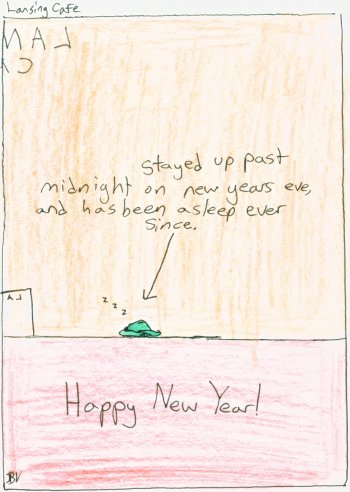 Lansing Cafe
LAN
CA
stayed up past
midnight on new years eve,
and has been asleep ever
since.
z z z
LA
Happy New Year!
BV